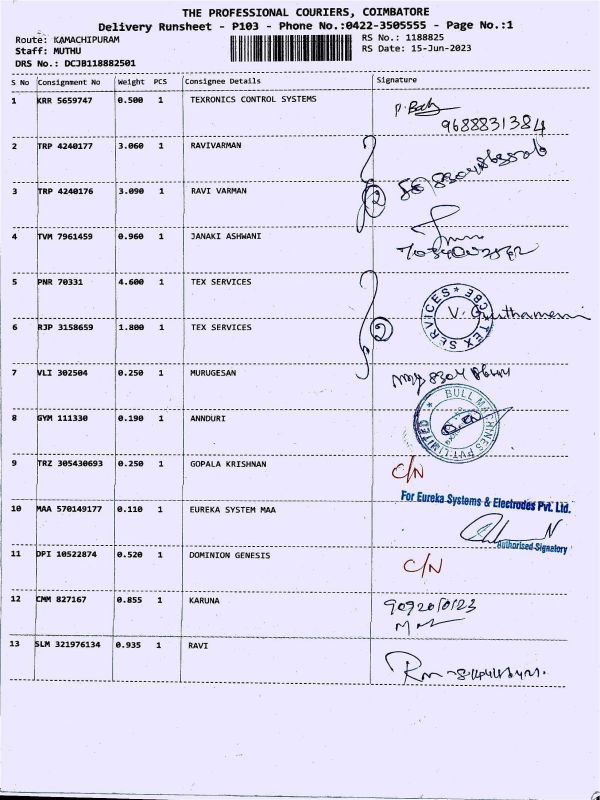 THE PROFESSIONAL COURIERS, COIMBATORE
Delivery Runsheet - P103 - Phone No.:0422-3505555 - Page No.:1
Route: KAMACHIPURAM RS No.: 1188825
Staff: MUTHU RS Date: 15-Jun-2023
DRS No.: DCJB118882501
S No Consignment No Weight PCS Consignee Details Signature
1 KRR 5659747 0.500 1 TEXRONICS CONTROL SYSTEMS
9688831384
2 TRP 4240177 3.060 1 RAVIVARMAN
3 TRP 4240176 3.090 1 RAVI VARMAN
2
4 TVM 7961459 0.960 1 JANAKI ASHWANI
5 PNR 70331 4.600 1 TEX SERVICES
TEX SERVICES * CBE *
6 RJP 3158659 1.800 1 TEX SERVICES
2
7 VLI 302504 0.250 1 MURUGESAN
BULL MACHINES PVT LIMITED
8 GYM 111330 0.190 1 ANNDURI
9 TRZ 305430693 0.250 1 GOPALA KRISHNAN C/N
For Eureka Systems & Electrodes Pvt. Ltd.
10 MAA 570149177 0.110 1 EUREKA SYSTEM MAA
Authorised Signatory
11 DPI 10522874 0.520 1 DOMINION GENESIS C/N
12 CMM 827167 0.855 1 KARUNA
13 SLM 321976134 0.935 1 RAVI